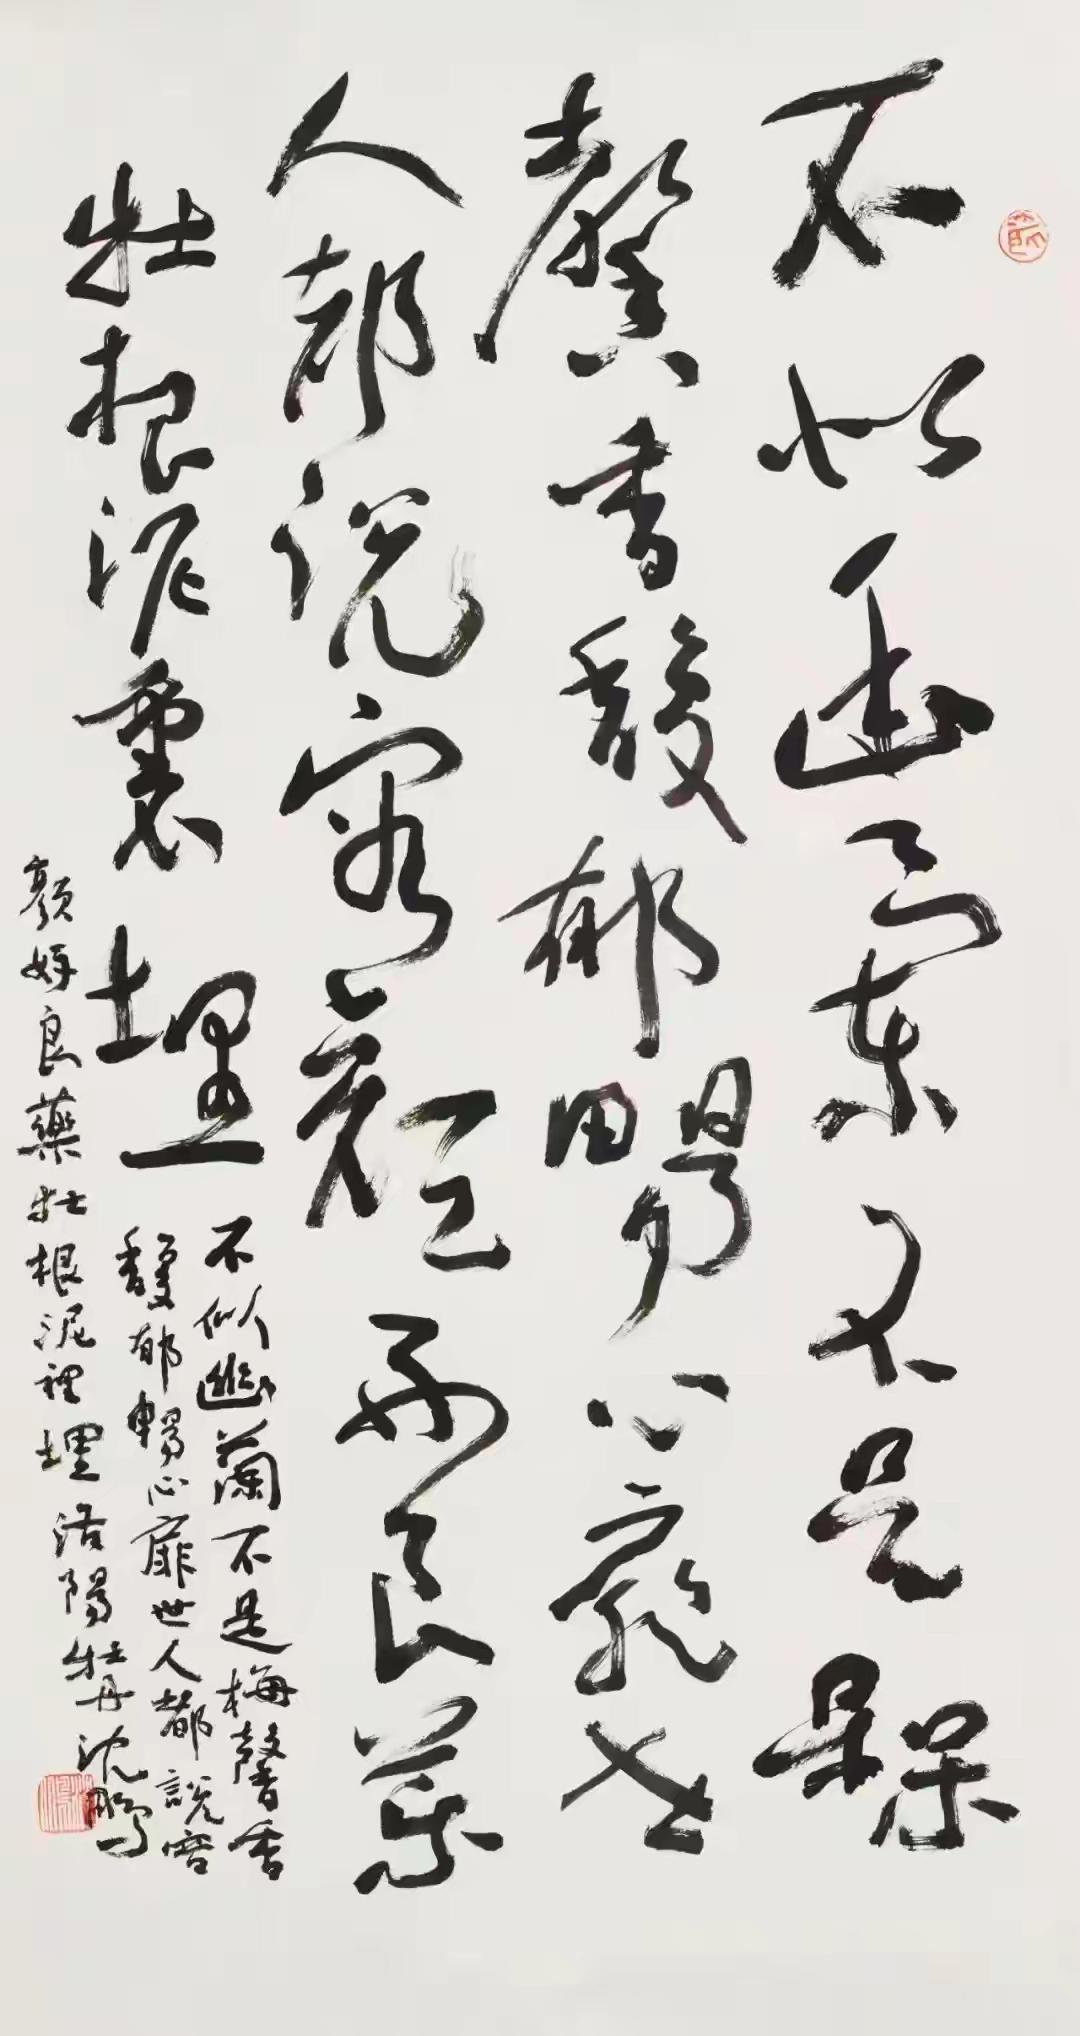 不似幽蘭不是槑
馨香馥郁暢心扉世
人都說容顏好良藥
牡根泥裏埋
不似幽蘭不是梅馨香
馥郁暢心扉世人都說容
顏好良藥牡根泥裡埋洛陽牡丹沈鵬